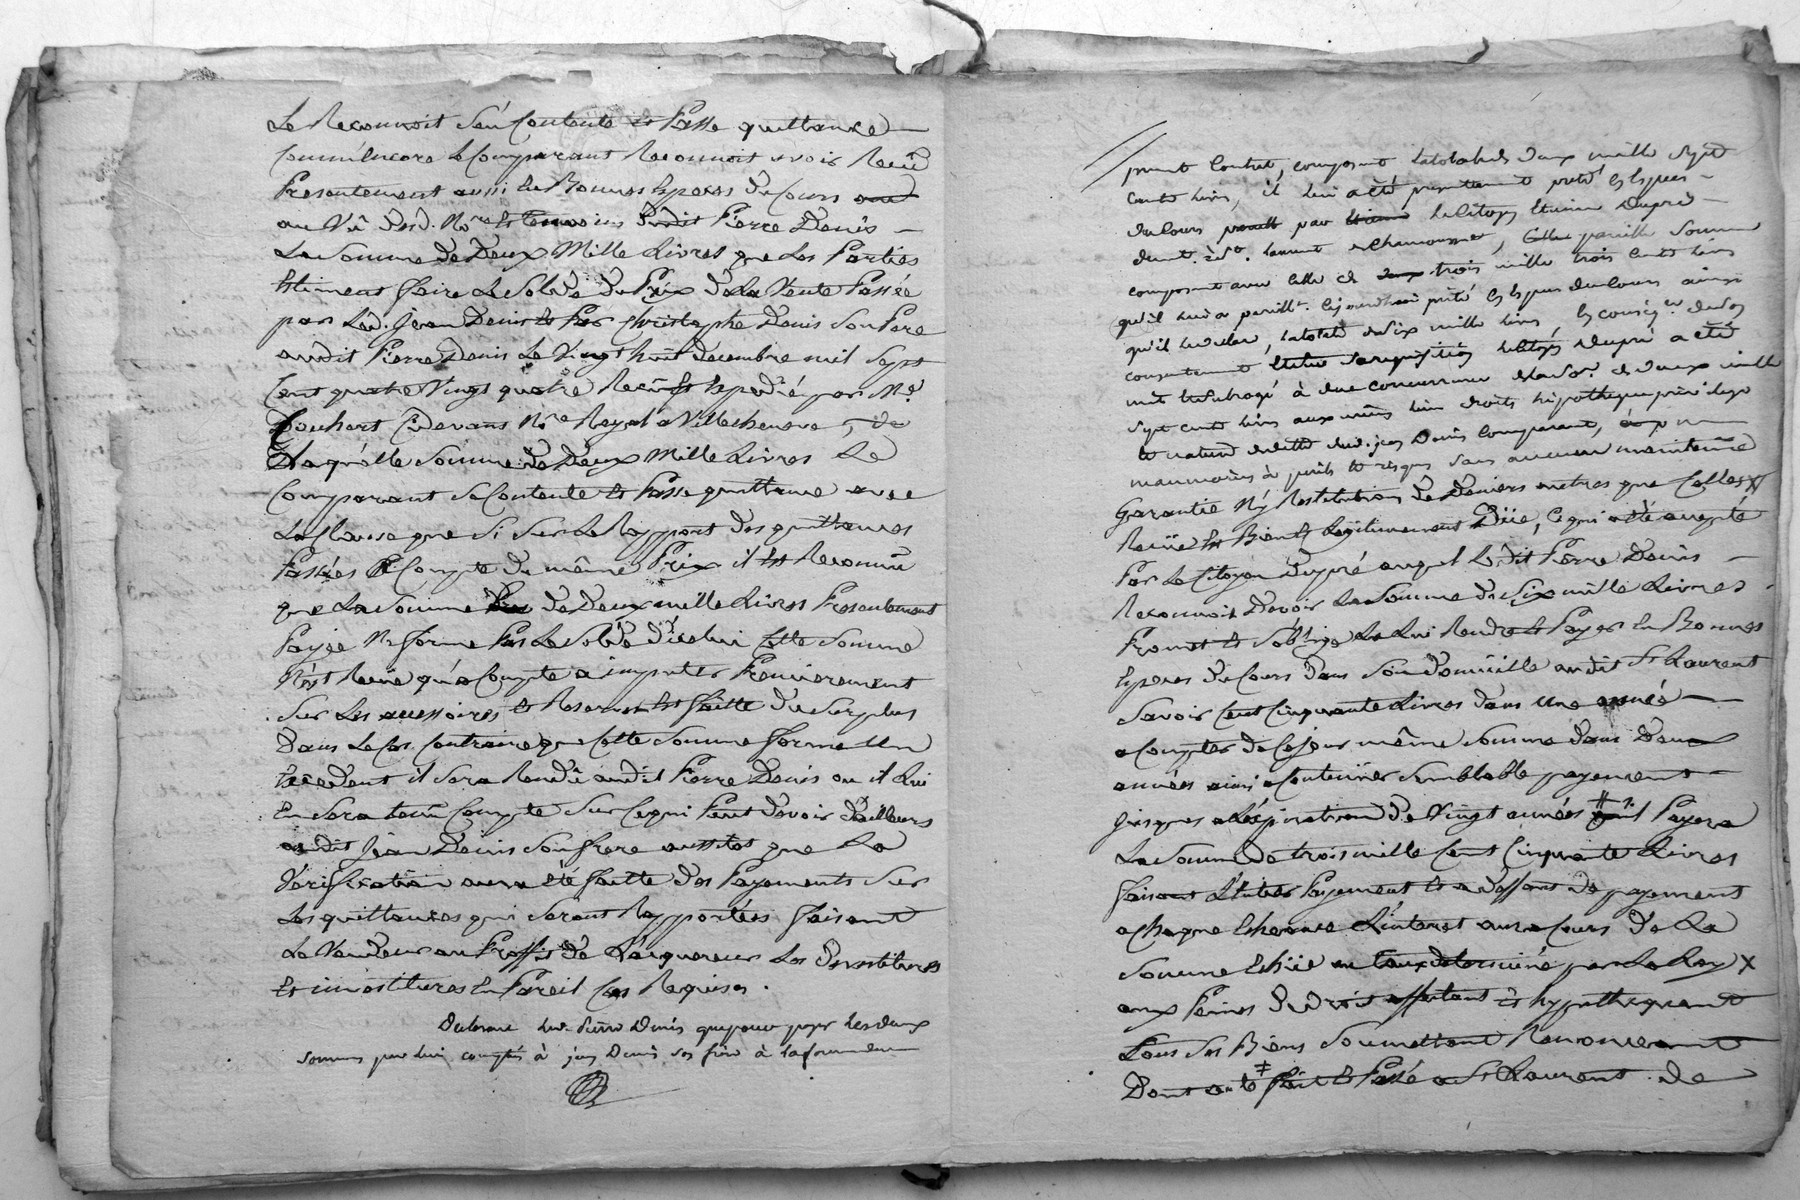 Le Reconnoit s'en Contente et Passe quittance
comm'Encore le Comparant Reconnoit avoir Recû
Presentement aussi En Bonnes Especes du Cours
au Vû des d. Nre et temoins dudit Pierre Denis
La Somme de Deux Mille Livres que Les Parties
Estiment faire Le Solde du Prix de La Vente Passée
par Led. Jean Denis et Par Christophe Denis Son Pere
audit Pierre Denis Le Vingt huit Decembre mil Sept
Cent quatre Vingt quatre Recû et Expedié par Me
Cidevant Nre Royal a Villechenève, De
Laquelle Somme De Deux Mille Livres Le
Comparant Se Contente et Passe quittance avec
La Clause que Si Sur Le Rapport des quittances
Passées a Compte du même Prix il Est Reconnû
que La Somme De Deux mille Livres Presentement
Payée Ne forme Pas Le Solde D'icelui Cette Somme
N'est Recue qu'a Compte a imputer Premierement
Sur Les accessoires et Reserve Est faitte du Surplus
Dans Le Cas Contraire que Cette Somme forme Un
Excedent il Sera Rendû audit Pierre Denis ou il Lui
En Sera tenû Compte Sur Ce qui Peut Devoir D'ailleurs
audit Jean Denis Son frere aussitot que La
Verification aura été faitte des Payements Sur
Les quittances qui Seront Rapportées faisant
Le Vendeur au Proffit de L'acquereur Les Devestitures
Et investitures En Pareil Cas Requises.
Declarant led. Pierre Denis que pour payer les deux
Sommes par lui comptés à jean Denis son frère à la forme du
present Contrat, composant la totale de deux mille Sept
cents livres, il lui a été presentement preté En Especes
du Cours par le Citoyen Etienne Dupré
demt. à St. Laurent de Chamousset, pareille Somme
composant avec celle de trois mille trois cents livres
qu'il lui a pareillt. cejourdhui preté En Especes du Cours ainsi
qu'il le declare, la totale de Six mille livres, En conséqce. du
consentement et requisition le Citoyen Dupré a été
mis et subrogé à due concurrence de lad. Se. de deux mille
Sept cents livres aux mêmes lieu droits hipotheque privilege
et nature de dette dud. jean Denis Comparant,
à perils et risques Sans aucune maintenüe
Garantie N'y Restitution De Deniers autres que Celles
Reçüe Et Bien Et Légitimement Düe, Ce qui a été accepté
Par Le Citoyen Dupré auquel Ledit Pierre Denis
Reconnoit Devoir La Somme de Six mille Livres
Promet et S'oblige La Lui Rendre Et Payer En Bonnes
Especes du Cours Dans Son Domicille audit St Laurent
Savoir Cent Cinquante Livres Dans Une année
a Compter de Ce jour même Somme Dans Deux
années ainsi a Continüer Semblable payement
jusques a L'expiration De Vingt années # Payera
La Somme de trois mille Cent Cinquante Livres
faisant L'Entier Payement Et a deffaut de payement
a Chaque Echeance L'interet aura Cours De La
Somme Echüe au taux determiné par La Loy X
aux Peines De droit affectant Et hypothequant
Tous Ses Biens Soumettant Renonceant
Dont acte ‡ fait Et Passé a St Laurent De